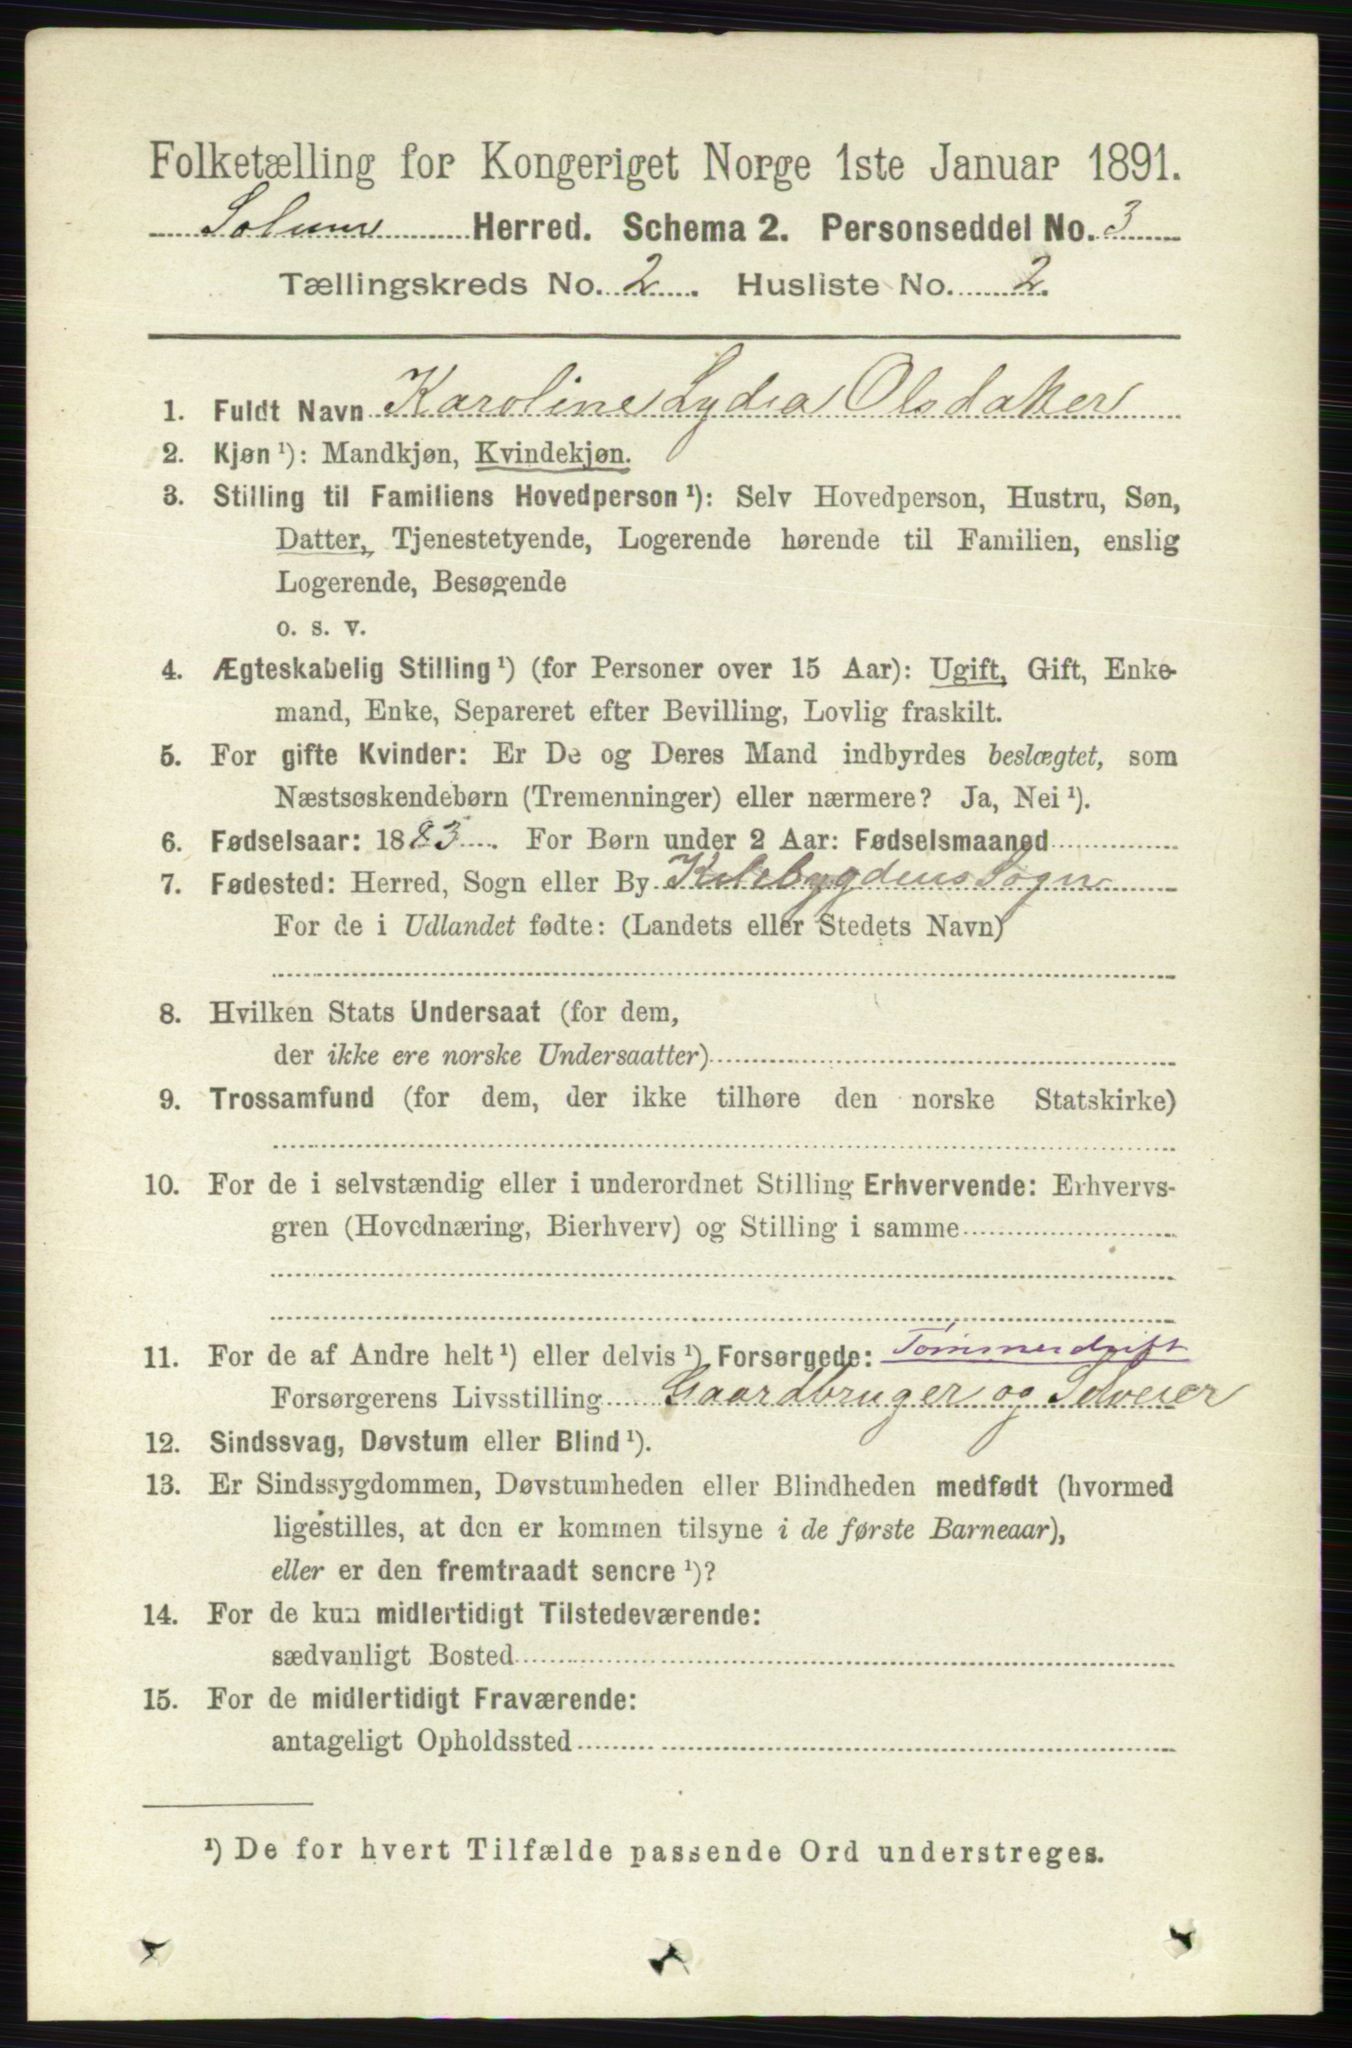 Folketælling for Kongeriget Norge 1ste Januar 1891.
Solum Herred. Schema 2. Personseddel No. 3
Tællingskreds No. 2. Husliste No. 2.
1. Fuldt Navn Karoline Lydia Olsdatter
2. Kjøn ¹): Mandkjøn, Kvindekjøn.
3. Stilling til Familiens Hovedperson ¹): Selv Hovedperson, Hustru, Søn,
Datter, Tjenestetyende, Logerende hørende til Familien, enslig
Logerende, Besøgende
o. s. v.
4. Ægteskabelig Stilling ¹) (for Personer over 15 Aar): Ugift, Gift, Enke-
mand, Enke, Separeret efter Bevilling, Lovlig fraskilt.
5. For gifte Kvinder: Er De og Deres Mand indbyrdes beslægtet, som
Næstsøskendebørn (Tremenninger) eller nærmere? Ja, Nei ¹).
6. Fødselsaar: 1883. For Børn under 2 Aar: Fødselsmaaned
7. Fødested: Herred, Sogn eller By Kilebygdens Sogn
For de i Udlandet fødte: (Landets eller Stedets Navn)
8. Hvilken Stats Undersaat (for dem,
der ikke ere norske Undersaatter)
9. Trossamfund (for dem, der ikke tilhøre den norske Statskirke)
10. For de i selvstændig eller i underordnet Stilling Erhvervende: Erhvervs-
gren (Hovednæring, Bierhverv) og Stilling i samme
11. For de af Andre helt ¹) eller delvis ¹) Forsørgede: Tømmerdrift
Forsørgerens Livsstilling Gaardbruger og Selveier
12. Sindssvag, Døvstum eller Blind ¹).
13. Er Sindssygdommen, Døvstumheden eller Blindheden medfødt (hvormed
ligestilles, at den er kommen tilsyne i de første Barneaar),
eller er den fremtraadt senere ¹)?
14. For de kun midlertidigt Tilstedeværende:
sædvanligt Bosted
15. For de midlertidigt Fraværende:
antageligt Opholdssted
¹) De for hvert Tilfælde passende Ord understreges.